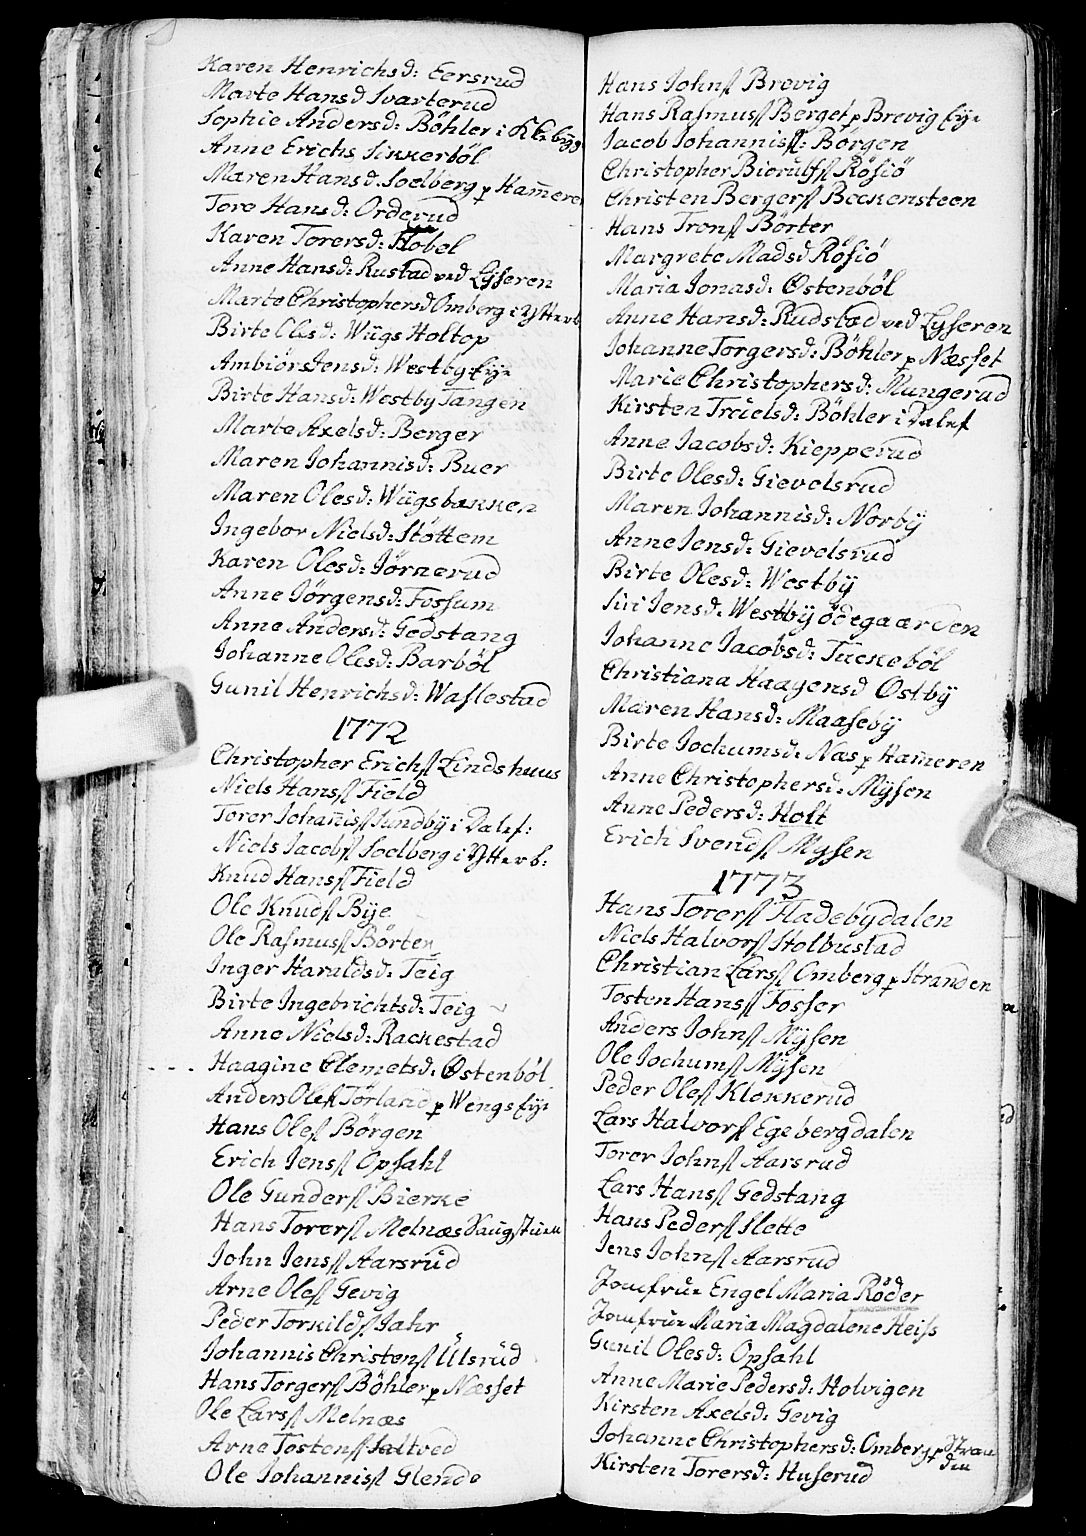 Karen Henrichsd: Eersrud
Marte Hansd Svarterud
Sophie Andersd: Böhler i Kk bÿg
Anne Erichs Sikkerböl
Maren Hansd: Soelberg p Ham̄eren
Tore Hansd: Orderud
Karen Torersd: Hobel
Anne Hansd: Rustad ved Lÿseren
Marte Christophersd Omberg i Ytterb
Birte Olesd: Wügs Holtop
Ambiörs Jensd: Westbÿ Eÿe
Birte Hansd: Westbÿ Tangen
Marte Axelsd: Berger
Maren Johannisd: Buer
Maren Olesd: Wügsbakken
Ingebor Nielsd: Støttem
Karen Olesd: Jörnerud
Anne Jörgensd: Fossum
Anne Andersd: Gedstang
Johanne Olesd: Barböl
Gunil Henrichsd: Waslestad
1772
Christopher Erichsſ Lindshuus
Niels Hansſ Field
Torer Johan̄isſ Sundbÿ i Dalef:
Niels Jacobsſ Soelberg i Ytterb:
Knud Hansſ Field
Ole Knudsſ Bÿe
Ole Rasmusſ Börten
Inger Haraldsd: Teig
Birte Ingebrichtsd: Teig
Anne Nielsd: Rackestad
Haagine Clemetsd: Østenböl
Anders Olesſ Törland p Wengs Eÿe
Hans Olesſ Börgen
Erich Jensſ Opsahl
Ole Gundersſ Bierke
Hans Torersſ Melnæs Saugstuen
John Jensſ Aarsrud
Arne Olesſ Gevig
Peder Torkildsſ Jahr
Johannis Christensſ Ulsrud
Hans Torgersſ Böhler p Næsset
Ole Larsſ Melnæs
Arne Tostensſ Saltved
Ole Johannisſ Glende
Hans Johnsſ Brevig
Hans Rasmusſ Berget p Brevig Eÿe
Jacob Johannisſ: Börgen
Christopher Bierulfsſ Rösiö
Christen Bergersſ Beckensteen
Hans Tronsſ Börter
Margrete Madsd Rösiö
Maria Jonasd: Østenböl
Anne Hansd: Rudstad ved Lÿseren
Johanne Torgersd: Böhler p Næsset
Marie Christophersd: Mungerud
Kirsten Troielsd: Böhler i Dalef
Anne Jacobsd: Kiepperud
Birte Olesd: Gievelsrud
Maren Johannisd: Norbÿ
Anne Jensd: Gievelsrud
Birte Olesd: Westbÿ
Siri Jensd: Westbÿ ödegaarden
Johanne Jacobsd: Tuckeböl
Christiana Haagensd Østbÿ
Maren Hansd: Maasebÿ
Birte Jochumsd: Næs p Ham̄eren
Anne Christophersd: Mÿsen
Anne Pedersd: Holt
Erich Svendsſ Mÿsen
1773
Hans Torersſ Fladebÿdalen
Niels Halvorsſ Stolbustad
Christian Larsſ Omberg p Stranden
Tosten Hansſ Fosser
Anders Johnsſ Mÿsen
Ole Jochumsſ Mÿsen
Peder Olesſ Klokkerud
Lars Halvorsſ Egebergdalen
Torer Johnsſ Aarsrud
Lars Hansſ Gedstang
Hans Pedersſ Slette
Jens Johnsſ Aarsrud
Jomfrue Engel Maria Röder
Jomfrue Maria Magdalene Heiss
Gunil Olesd: Opsahl
Anne Marie Pedersd: Holvigen
Kirsten Axelsd: Gevig
Johanne Christophersd: Omberg p Stranden
Kirsten Torersd: Huserud